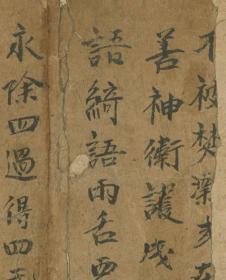 不被焚漂身
善神衛護戌
語綺語兩舌惡
永除四過得四